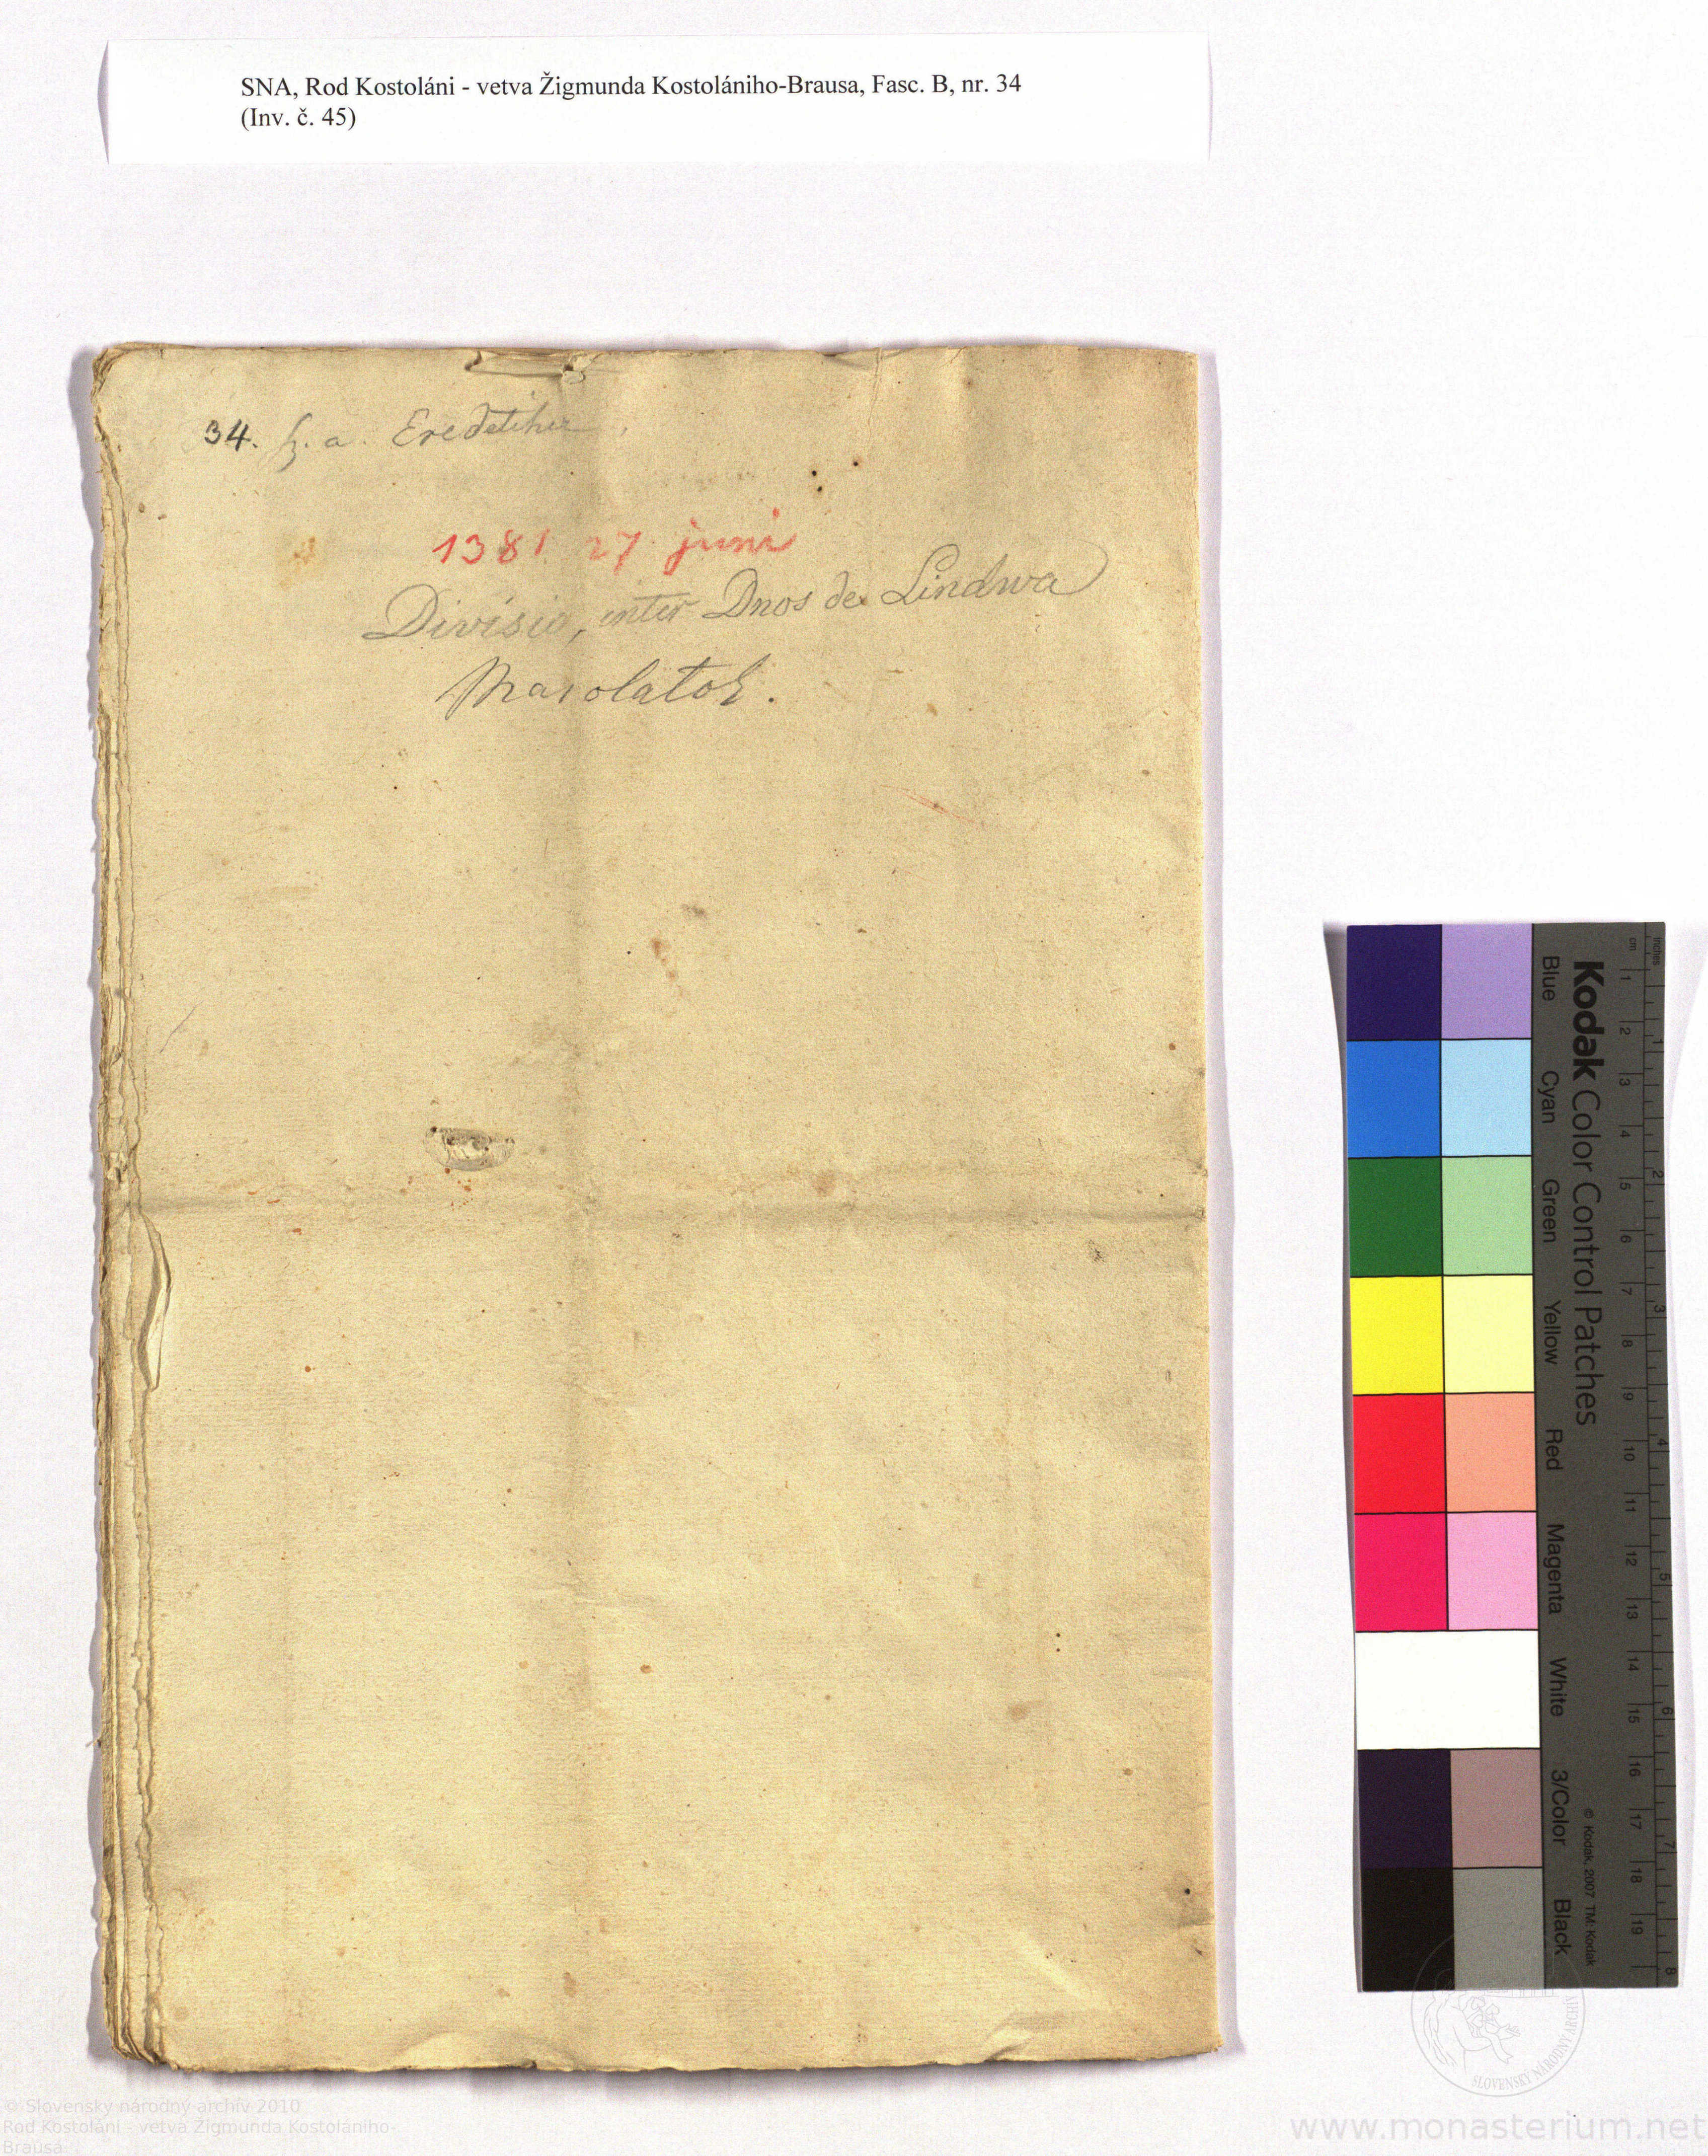 SNA, Rod Kostoláni - vetva Žigmunda Kostolániho-Brausa, Fasc. B, nr. 34
(Inv. č. 45)
34. sz. a. Eredetihez
1381 27 juni
Divisio, inter Dnos de Lindwa
Masolatok.
Kodak Color Control Patches
Blue Cyan Green Yellow Red Magenta White 3/Color Black
© Kodak, 2007 TM: Kodak
cm 1 2 3 4 5 6 7 8 9 10 11 12 13 14 15 16 17 18 19
inches 1 2 3 4 5 6 7 8
SLOVENSKÝ NÁRODNÝ ARCHÍV
© Slovenský národný archív 2010
Rod Kostoláni - vetva Žigmunda Kostolániho-
Brausa:
www.monasterium.net